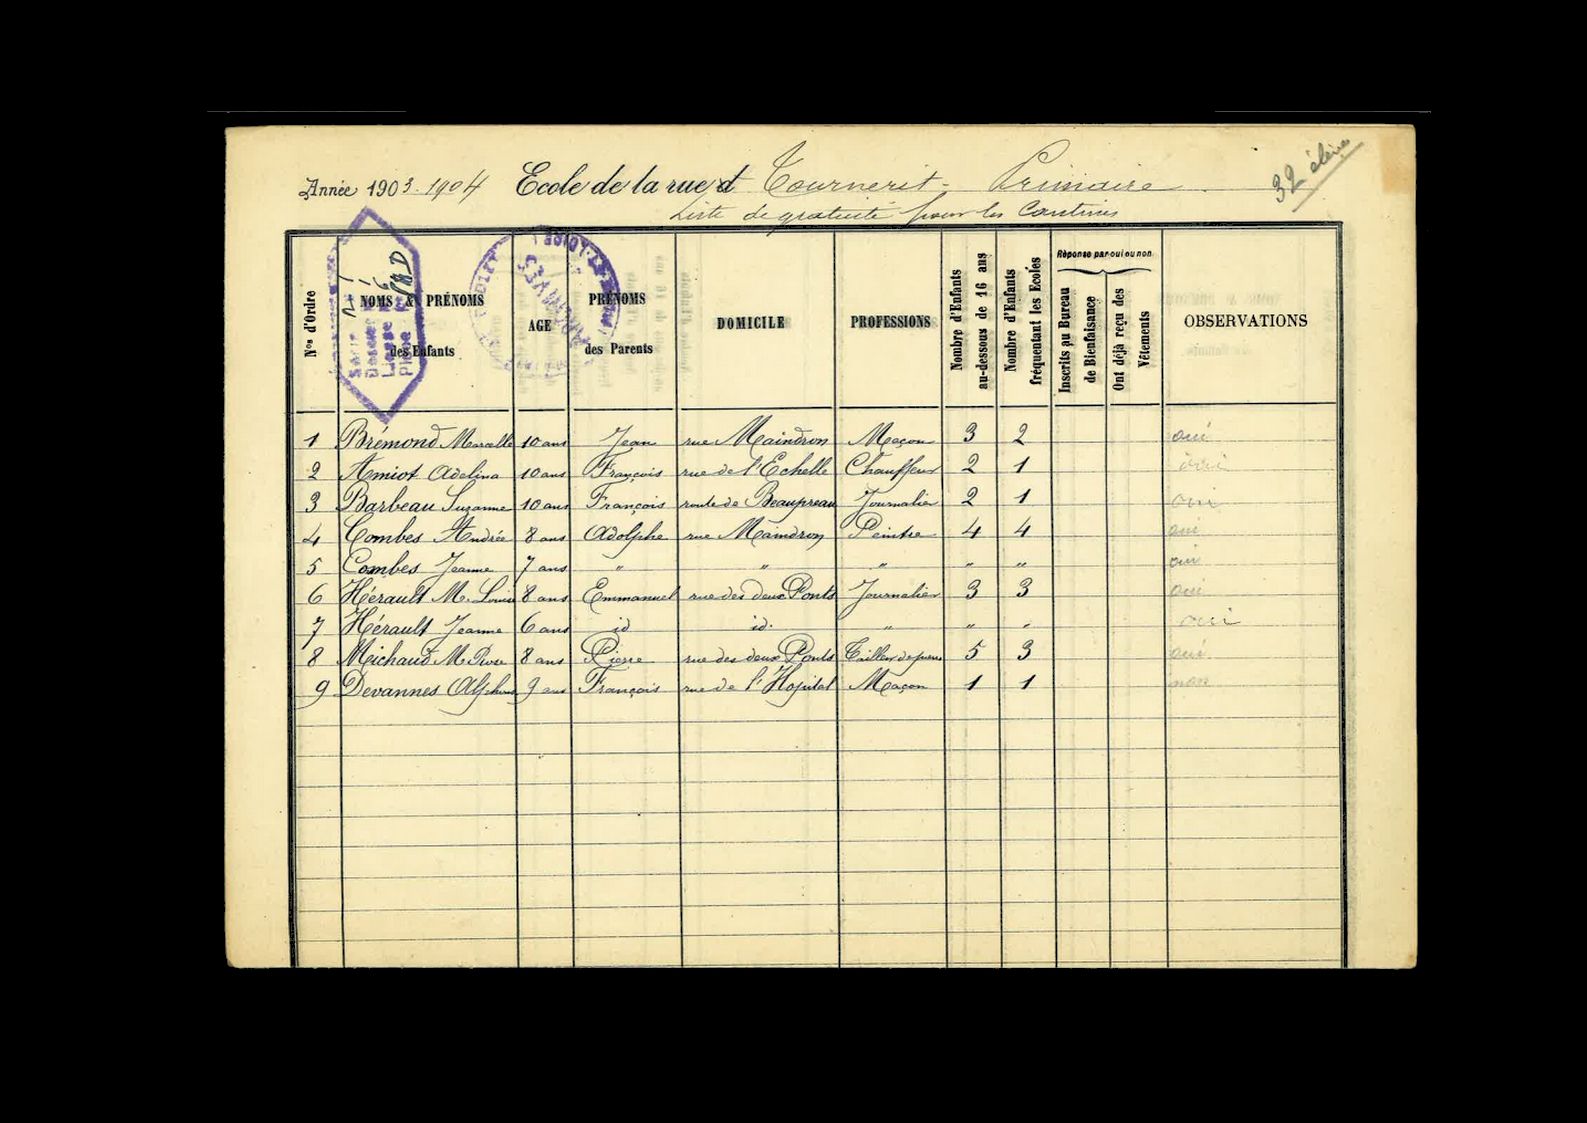 32 élèves
Année 1903-1904 Ecole de la rue d Tournerit - Primaire
Liste de gratuité pour les Cantines
Nos d'Ordre
NOMS & PRÉNOMS
des Enfants
AGE
PRÉNOMS
des Parents
DOMICILE
PROFESSIONS
Nombre d'Enfants
au-dessous de 16 ans
Nombre d'Enfants
fréquentant les Ecoles
Réponse par oui ou non
Inscrits au Bureau
de Bienfaisance
Ont déjà reçu des
Vêtements
OBSERVATIONS
1 Brémond Marcelle 10 ans Jean rue Maindron Maçon 3 2 oui
2 Amiot Adelina 10 ans François rue de l'Echelle Chauffeur 2 1 oui
3 Barbeau Suzanne 10 ans François route de Beaupreau Journalier 2 1 oui
4 Combes Andrée 8 ans Adolphe rue Maindron Peintre 4 4 oui
5 Combes Jeanne 7 ans " " " " " oui
6 Hérault M. Louise 8 ans Emmanuel rue des deux Ponts Journalier 3 3 oui
7 Hérault Jeanne 6 ans id id. " " " oui
8 Michaud M. 8 ans Pierre rue des deux Ponts Tailleur de pierres 5 3 oui
9 Devannes 9 ans François rue de l'Hopital Maçon 1 1 non